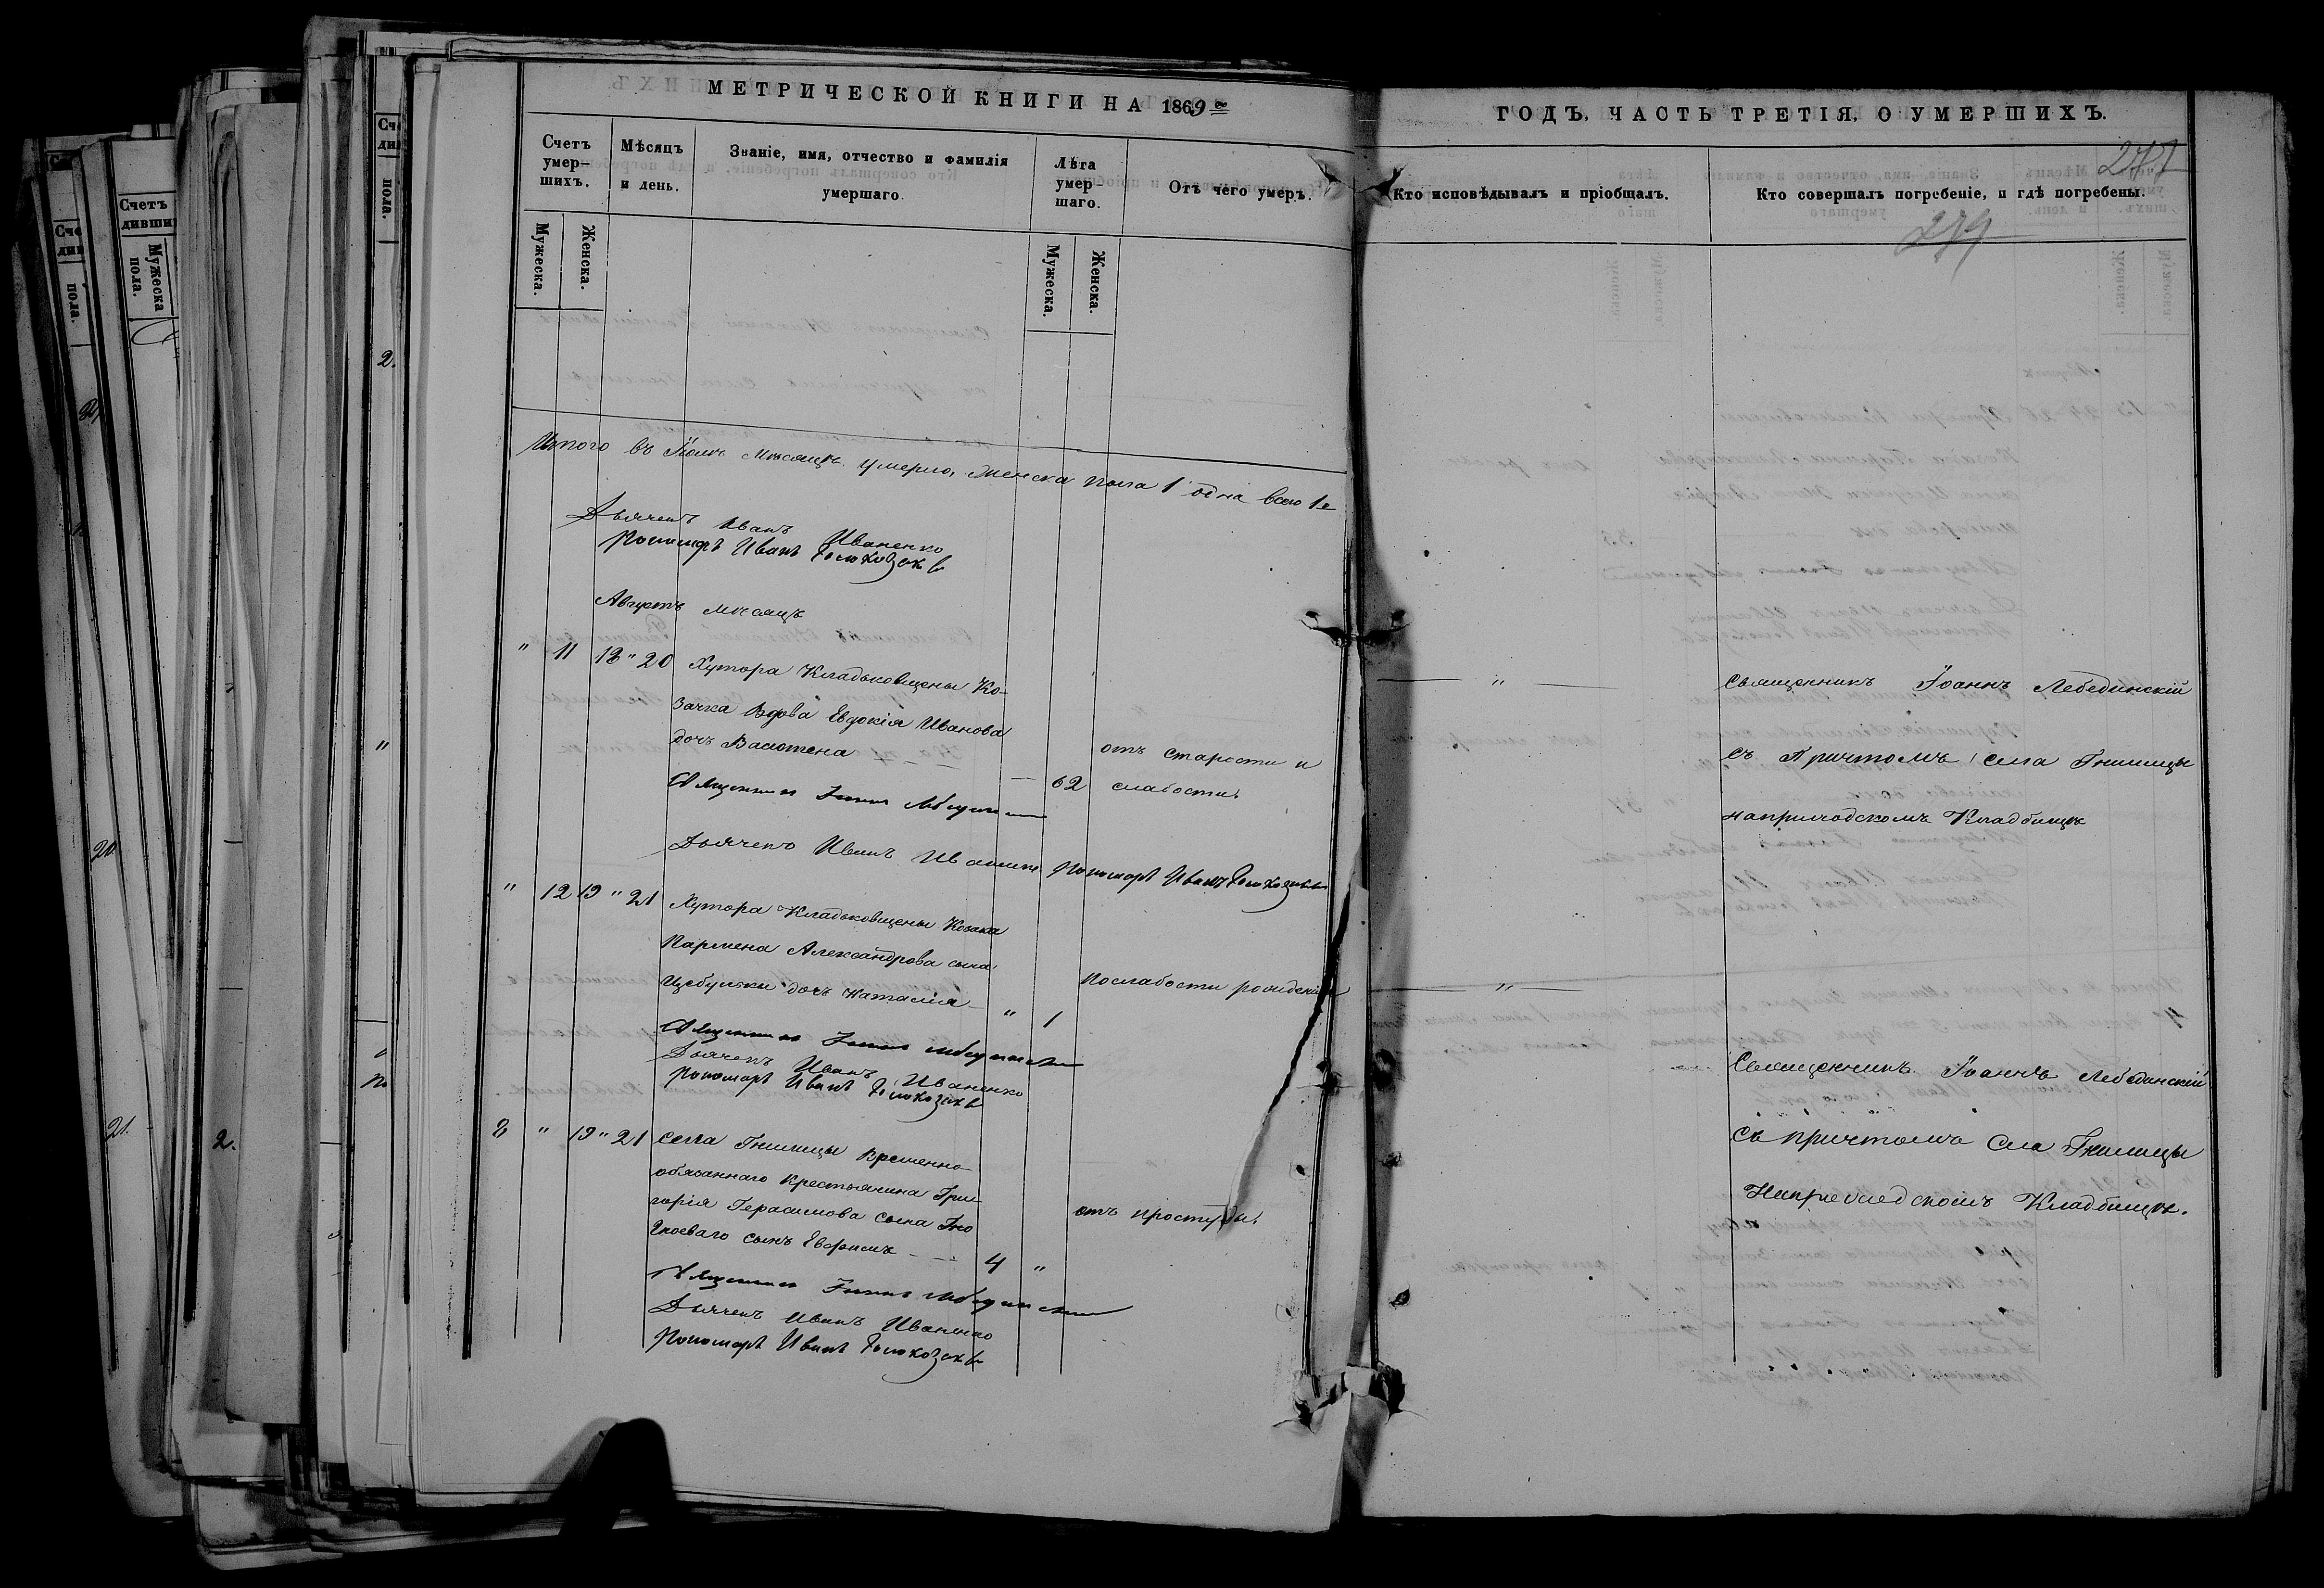 МЕТРИЧЕСКОЙ КНИГИ НА 1869
Счетъ умер-шихъ.
Мѣсяцъ и день.
Званіе, имя, отчество и фамилія умершаго.
Лѣта умер-шаго.
Отъ чего умеръ.
Мужеска.
Женска.
Мужеска.
Женска.
Итого въ Іюлѣ мѣсяцѣ умерло, женска пола 1 одна всего 1
Дьячекъ Иванъ Иваненко
Пономарь Иванъ
Августъ мѣсяцъ
" 11 18 " 20 Хутора Кладьковщены Ко-
зачка Вдова Евдокія Иванова
дочъ
отъ старости и
— 62 слабости.
Священникъ Іоаннъ Лебединскій
Дьячекъ Иванъ Иваненко Пономарь Иванъ
" 12 19 " 21 Хутора Кладьковщены Козака
Пармена Александрова сына
Цыбульки дочъ Наталія " 1
Послабости рожденія
Священникъ Іоаннъ Лебединскій
Дьячекъ Иванъ Иваненко
Пономарь Иванъ
8 " 19 " 21 Села Гнилицы Временно-
обязаннаго Крестьянина Гри-
горія Герасимова сына
сынъ 4 "
отъ простуды.
Священникъ Іоаннъ Лебединскій
Дьячекъ Иванъ Иваненко
Пономарь Иванъ
ГОДЪ, ЧАСТЬ ТРЕТІЯ, О УМЕРШИХЪ.
Кто исповѣдывалъ и пріобщалъ.
Кто совершалъ погребеніе, и гдѣ погребены.
"
Священникъ Іоаннъ Лебединскій
съ Причтомъ села Гнилицы
наприходскомъ Кладбищѣ
"
Священникъ Іоаннъ Лебединскій
съ причтомъ села Гнилицы
Наприходскомъ Кладбищѣ.
Счетъ
дивши
Мужеска
пола.
пола.
2.
20.
21.
2.